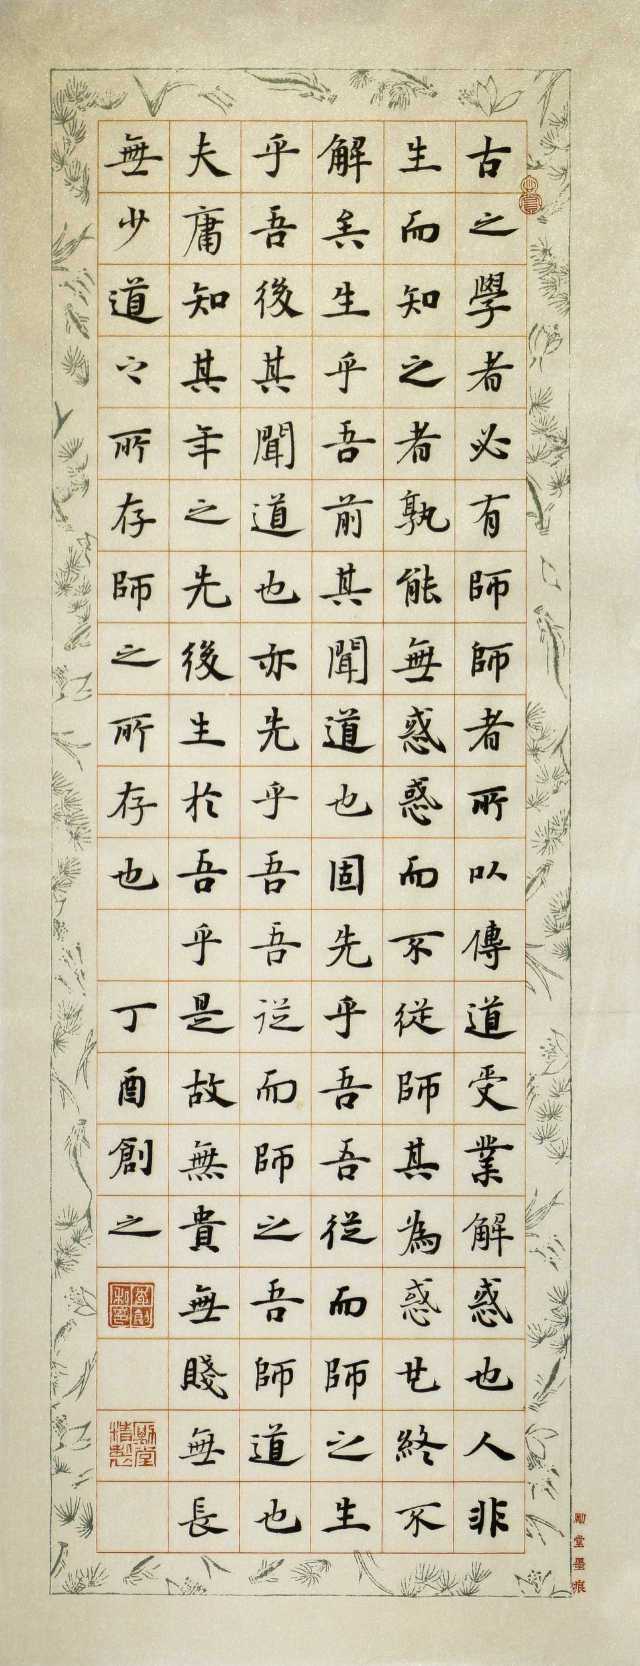 古之學者必有師師者所以傳道受業解惑也人非
生而知之者孰能無惑惑而不從師其為惑也終不
解矣生乎吾前其聞道也固先乎吾吾從而師之生
乎吾後其聞道也亦先乎吾吾從而師之吾師道也
夫庸知其年之先後生於吾乎是故無貴無賤無長
無少道之所存師之所存也 丁酉創之
堂墨痕